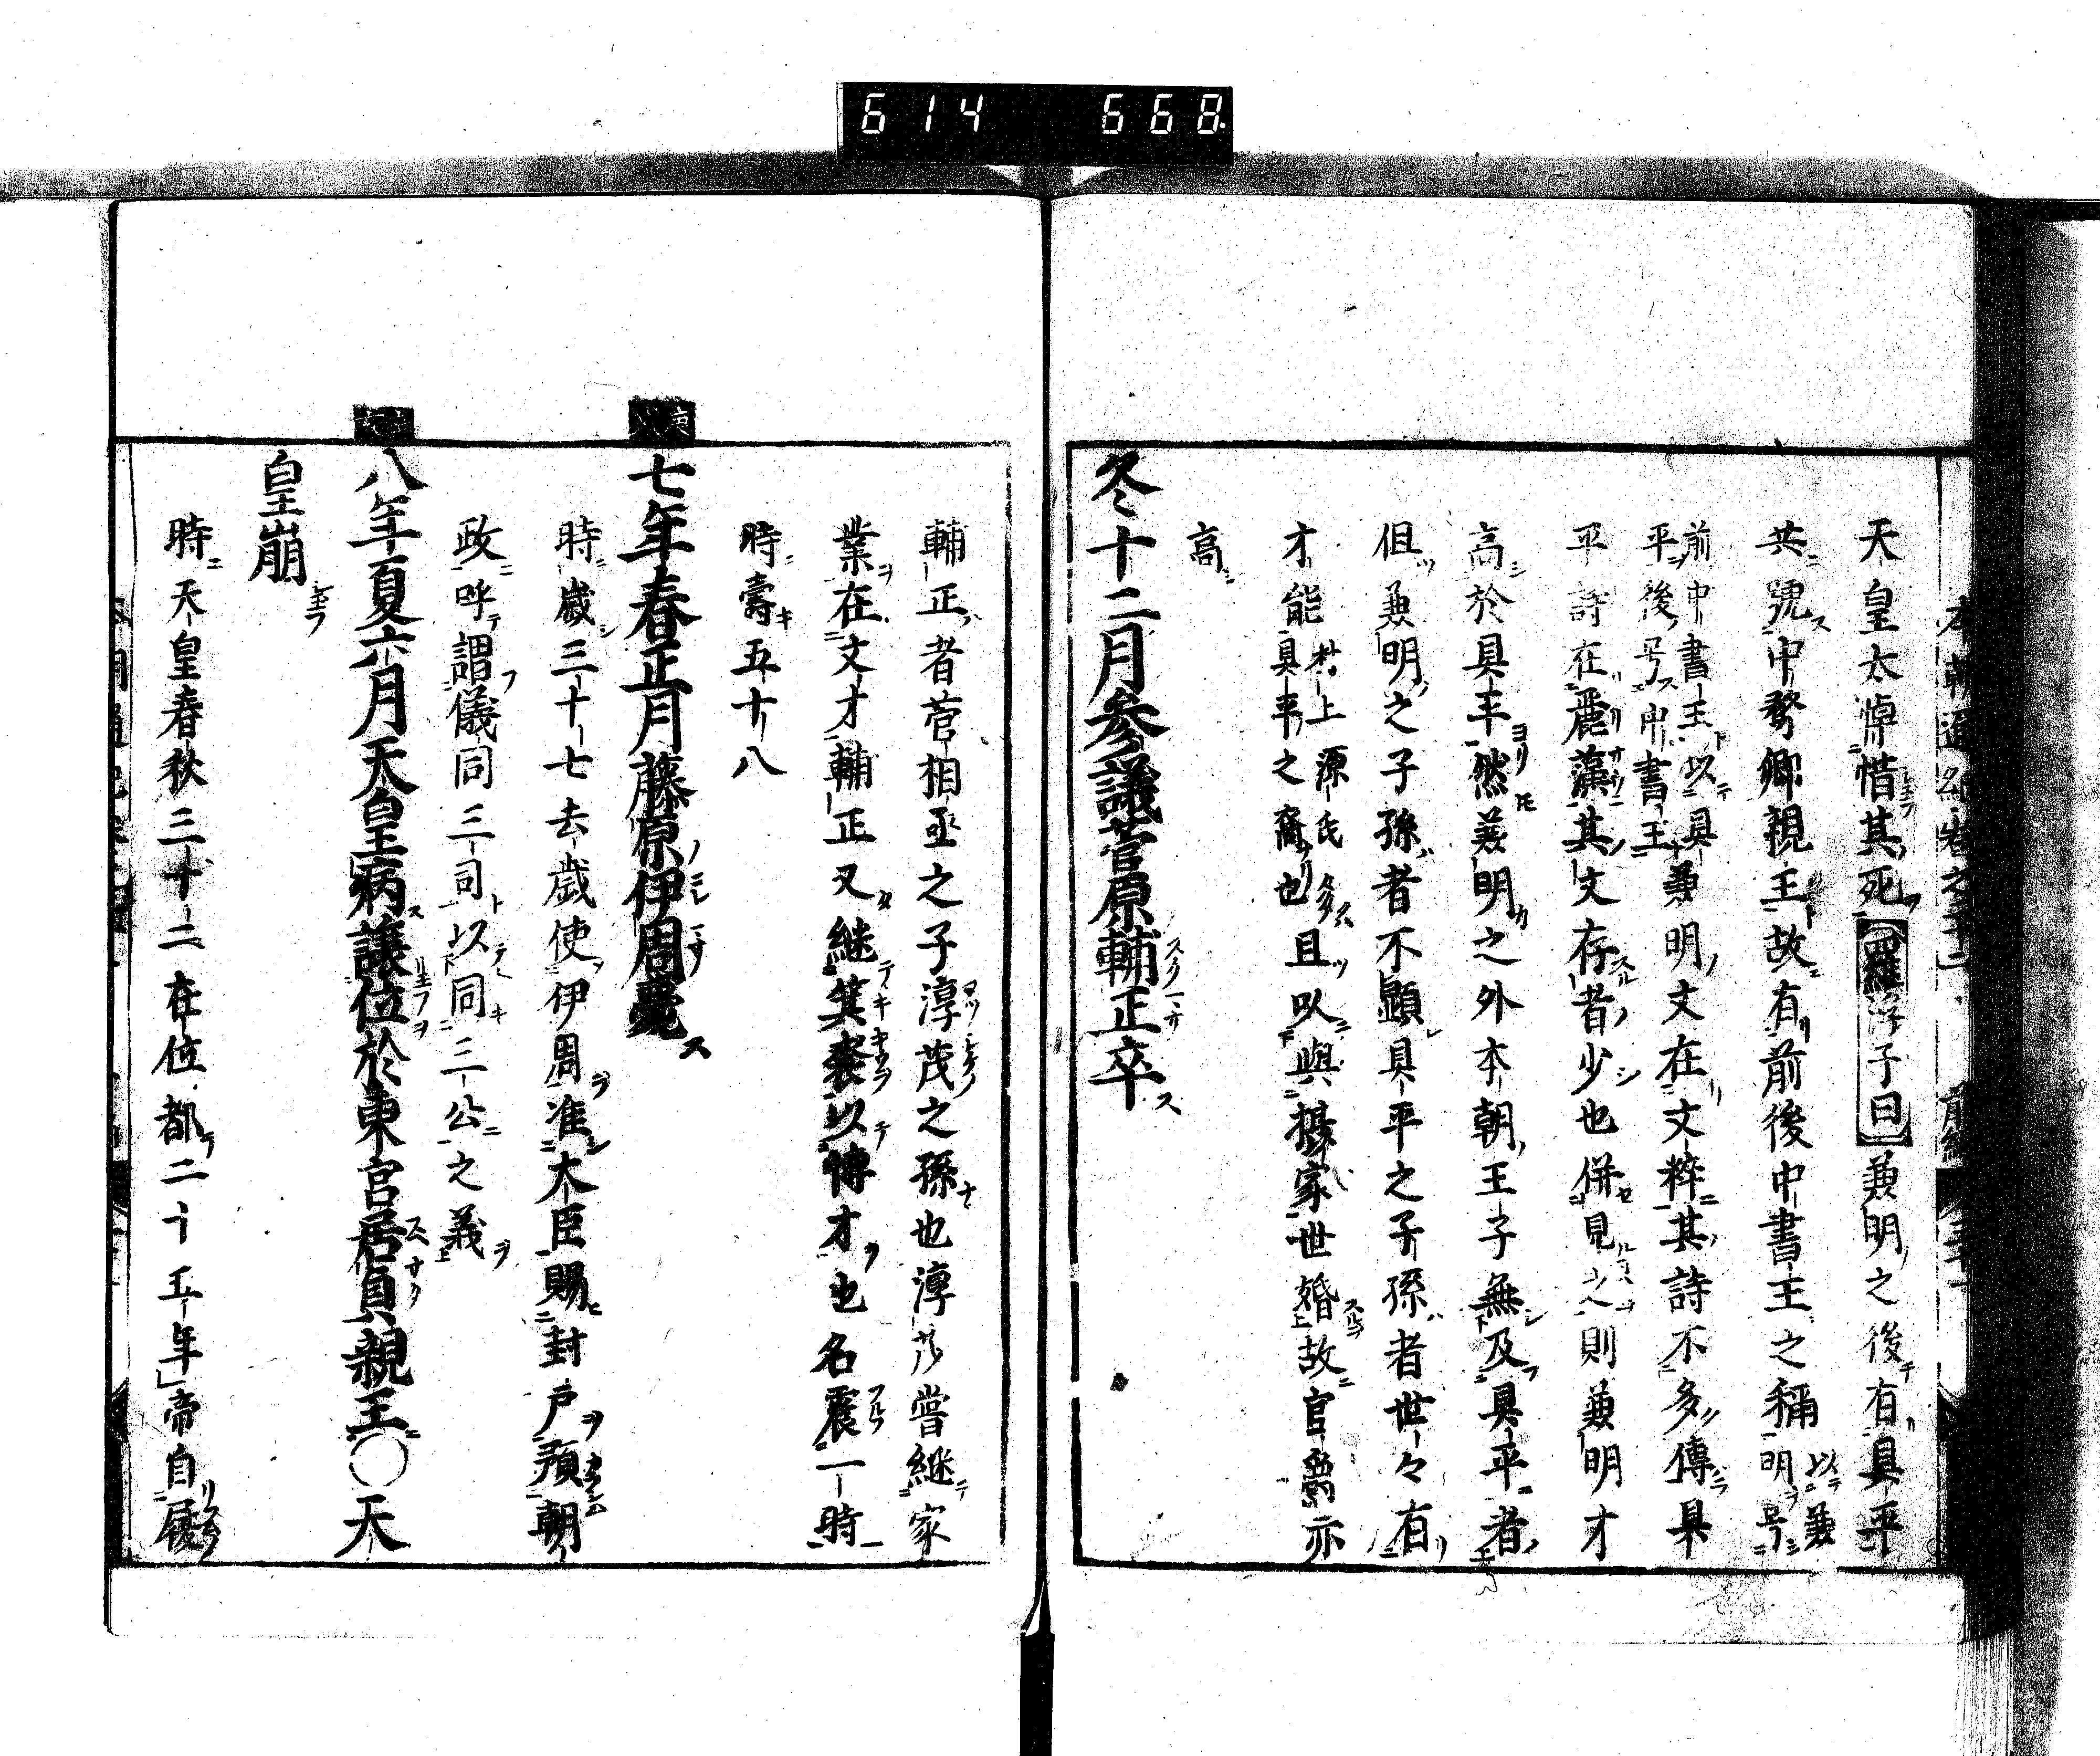 614 668
天皇太悼惜其死【羅浮子曰】兼明之後有具平
共號中務卿親王故有前後中書王之稱以兼明号
前中書王以具平後号中書王兼明文在文粹其詩不多傳具
平詩在麗藻其文存者少也併見之則兼明才
高於具平然兼明之外本朝王子無及具平者
但兼明之子孫者不顯具平之子孫者世々有
才能村上源氏多具平之裔也且以與攝家世婚故官爵亦
高
冬十二月參議菅原輔正卒
輔正者菅相丞之子淳茂之孫也淳茂嘗継家
業在文才輔正又継箕裘以博才也名震一時
時壽五十八
七年春正月藤原伊周薨
時歳三十七去歳使伊周准大臣賜封戸預朝
政呼謂儀同三司以同三公之義
八年夏六月天皇病譲位於東宮居貞親王〇天
皇崩
時天皇春秋三十二在位都二十五年」帝自屐